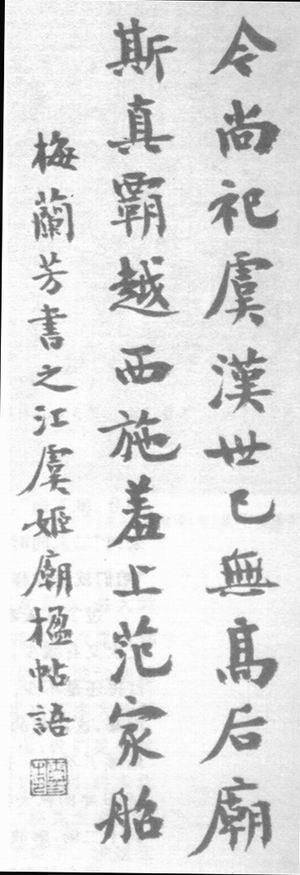 今尚祀虞漢世已無高后廟
斯真霸越西施羞上范家船
梅蘭芳書之江虞姬廟楹帖語